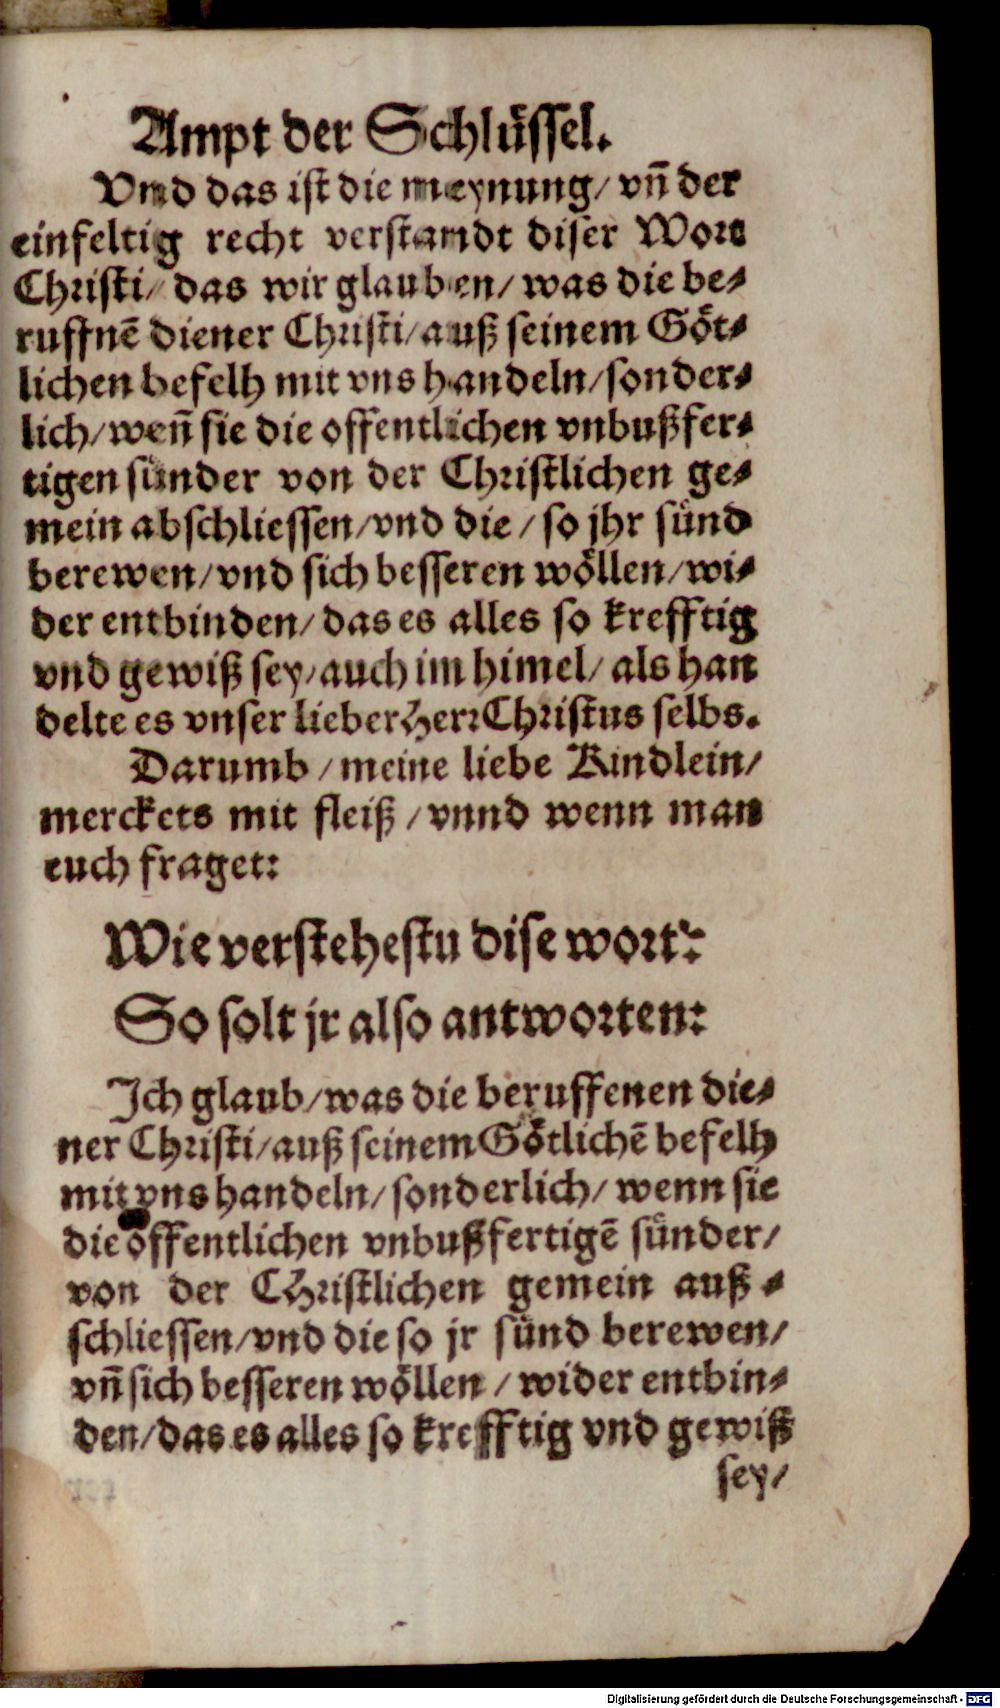 Ampt der Schlüssel.
Vnd das ist die meynung/ vn̄ der
einfeltig recht verstandt diser Wort
Christi/ das wir glauben/ was die be-
ruffnē diener Christi/ auß seinem Göt-
lichen befelh mit vns handeln/ sonder-
lich/ wen̄ sie die offentlichen vnbußfer-
tigen sünder von der Christlichen ge-
mein abschliessen/ vnd die/ so jhr sünd
berewen/ vnd sich besseren wöllen/ wi-
der entbinden/ das es alles so krefftig
vnd gewiß sey/ auch im himel/ als han
delte es vnser lieber Herr Christus selbs.
Darumb/ meine liebe Kindlein/
merckets mit fleiß/ vnnd wenn man
euch fraget:
Wie verstehestu dise wort?
So solt jr also antworten:
Ich glaub/ was die beruffenen die-
ner Christi/ auß seinem Götlichē befelh
mit vns handeln/ sonderlich/ wenn sie
die offentlichen vnbußfertigē sünder/
von der CHristlichen gemein auß-
schliessen/ vnd die so jr sünd berewen/
vn̄ sich besseren wöllen/ wider entbin-
den/ das es alles so krefftig vnd gewiß
sey/
Digitalisierung gefördert durch die Deutsche Forschungsgemeinschaft - DFG